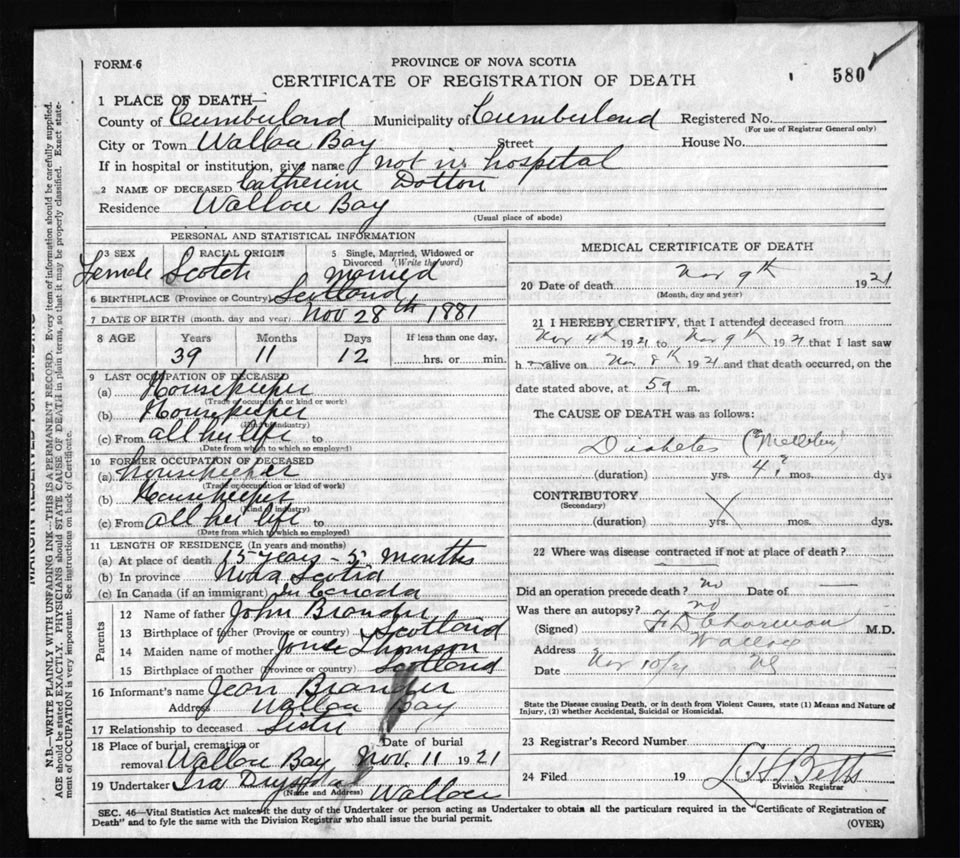 FORM 6
PROVINCE OF NOVA SCOTIA
CERTIFICATE OF REGISTRATION OF DEATH
580
1 PLACE OF DEATH—
County of Cumberland Municipality of Cumberland Registered No.
(For use of Registrar General only)
City or Town Wallace Bay Street House No.
If in hospital or institution, give name not in hospital
2 NAME OF DECEASED Catherine Dotton
Residence Wallace Bay
(Usual place of abode)
PERSONAL AND STATISTICAL INFORMATION
3 SEX RACIAL ORIGIN 5 Single, Married, Widowed or Divorced (Write the word)
Female Scotch married
6 BIRTHPLACE (Province or Country) Scotland
7 DATE OF BIRTH (month, day and year) Nov 28th 1881
8 AGE Years Months Days If less than one day,
39 11 12 hrs. or min.
9 LAST OCCUPATION OF DECEASED
(a) Housekeeper
(Trade or occupation or kind of work)
(b) Housekeeper
(Kind of industry)
(c) From all her life to
(Date from which to which so employed)
10 FORMER OCCUPATION OF DECEASED
(a) housekeeper
(Trade or occupation or kind of work)
(b) Housekeeper
(Kind of industry)
(c) From all her life to
(Date from which to which so employed)
11 LENGTH OF RESIDENCE (In years and months)
(a) At place of death 15 years - 5 months
(b) In province Nova Scotia
(c) In Canada (if an immigrant) In Canada
Parents
12 Name of father John Brander
13 Birthplace of father (Province or country) Scotland
14 Maiden name of mother Thomson
15 Birthplace of mother (Province or country) Scotland
16 Informant's name Jean Brander
Address Wallace Bay
17 Relationship to deceased Sister
18 Place of burial, cremation or removal Wallace Bay Date of burial Nov. 11 1921
19 Undertaker Ira Wallace
(Name and Address)
MEDICAL CERTIFICATE OF DEATH
20 Date of death Nov 9th 1921
(Month, day and year)
21 I HEREBY CERTIFY, that I attended deceased from
Nov 4th 1921 to Nov 9th 1921 that I last saw
her alive on Nov 8th 1921 and that death occurred, on the
date stated above, at 5 a m.
The CAUSE OF DEATH was as follows:
Diabetes (Mellitus)
(duration) yrs. 4? mos. dys
CONTRIBUTORY
(Secondary)
(duration) yrs. mos. dys.
22 Where was disease contracted if not at place of death?
Did an operation precede death? no Date of —
Was there an autopsy? no
(Signed) M.D.
Address Wallace
Date Nov 10/21 NS
State the Disease causing Death, or in death from Violent Causes, state (1) Means and Nature of
Injury, (2) whether Accidental, Suicidal or Homicidal.
23 Registrar's Record Number
24 Filed 19 Betts
Division Registrar
SEC. 46—Vital Statistics Act makes it the duty of the Undertaker or person acting as Undertaker to obtain all the particulars required in the "Certificate of Registration of
Death" and to fyle the same with the Division Registrar who shall issue the burial permit.
(OVER)
MARGIN RESERVED FOR BINDING
N.B.—WRITE PLAINLY WITH UNFADING INK—THIS IS A PERMANENT RECORD. Every item of information should be carefully supplied.
AGE should be stated EXACTLY. PHYSICIANS should STATE CAUSE OF DEATH in plain terms, so that it may be properly classified. Exact state-
ment of OCCUPATION is very important. See instructions on back of Certificate.